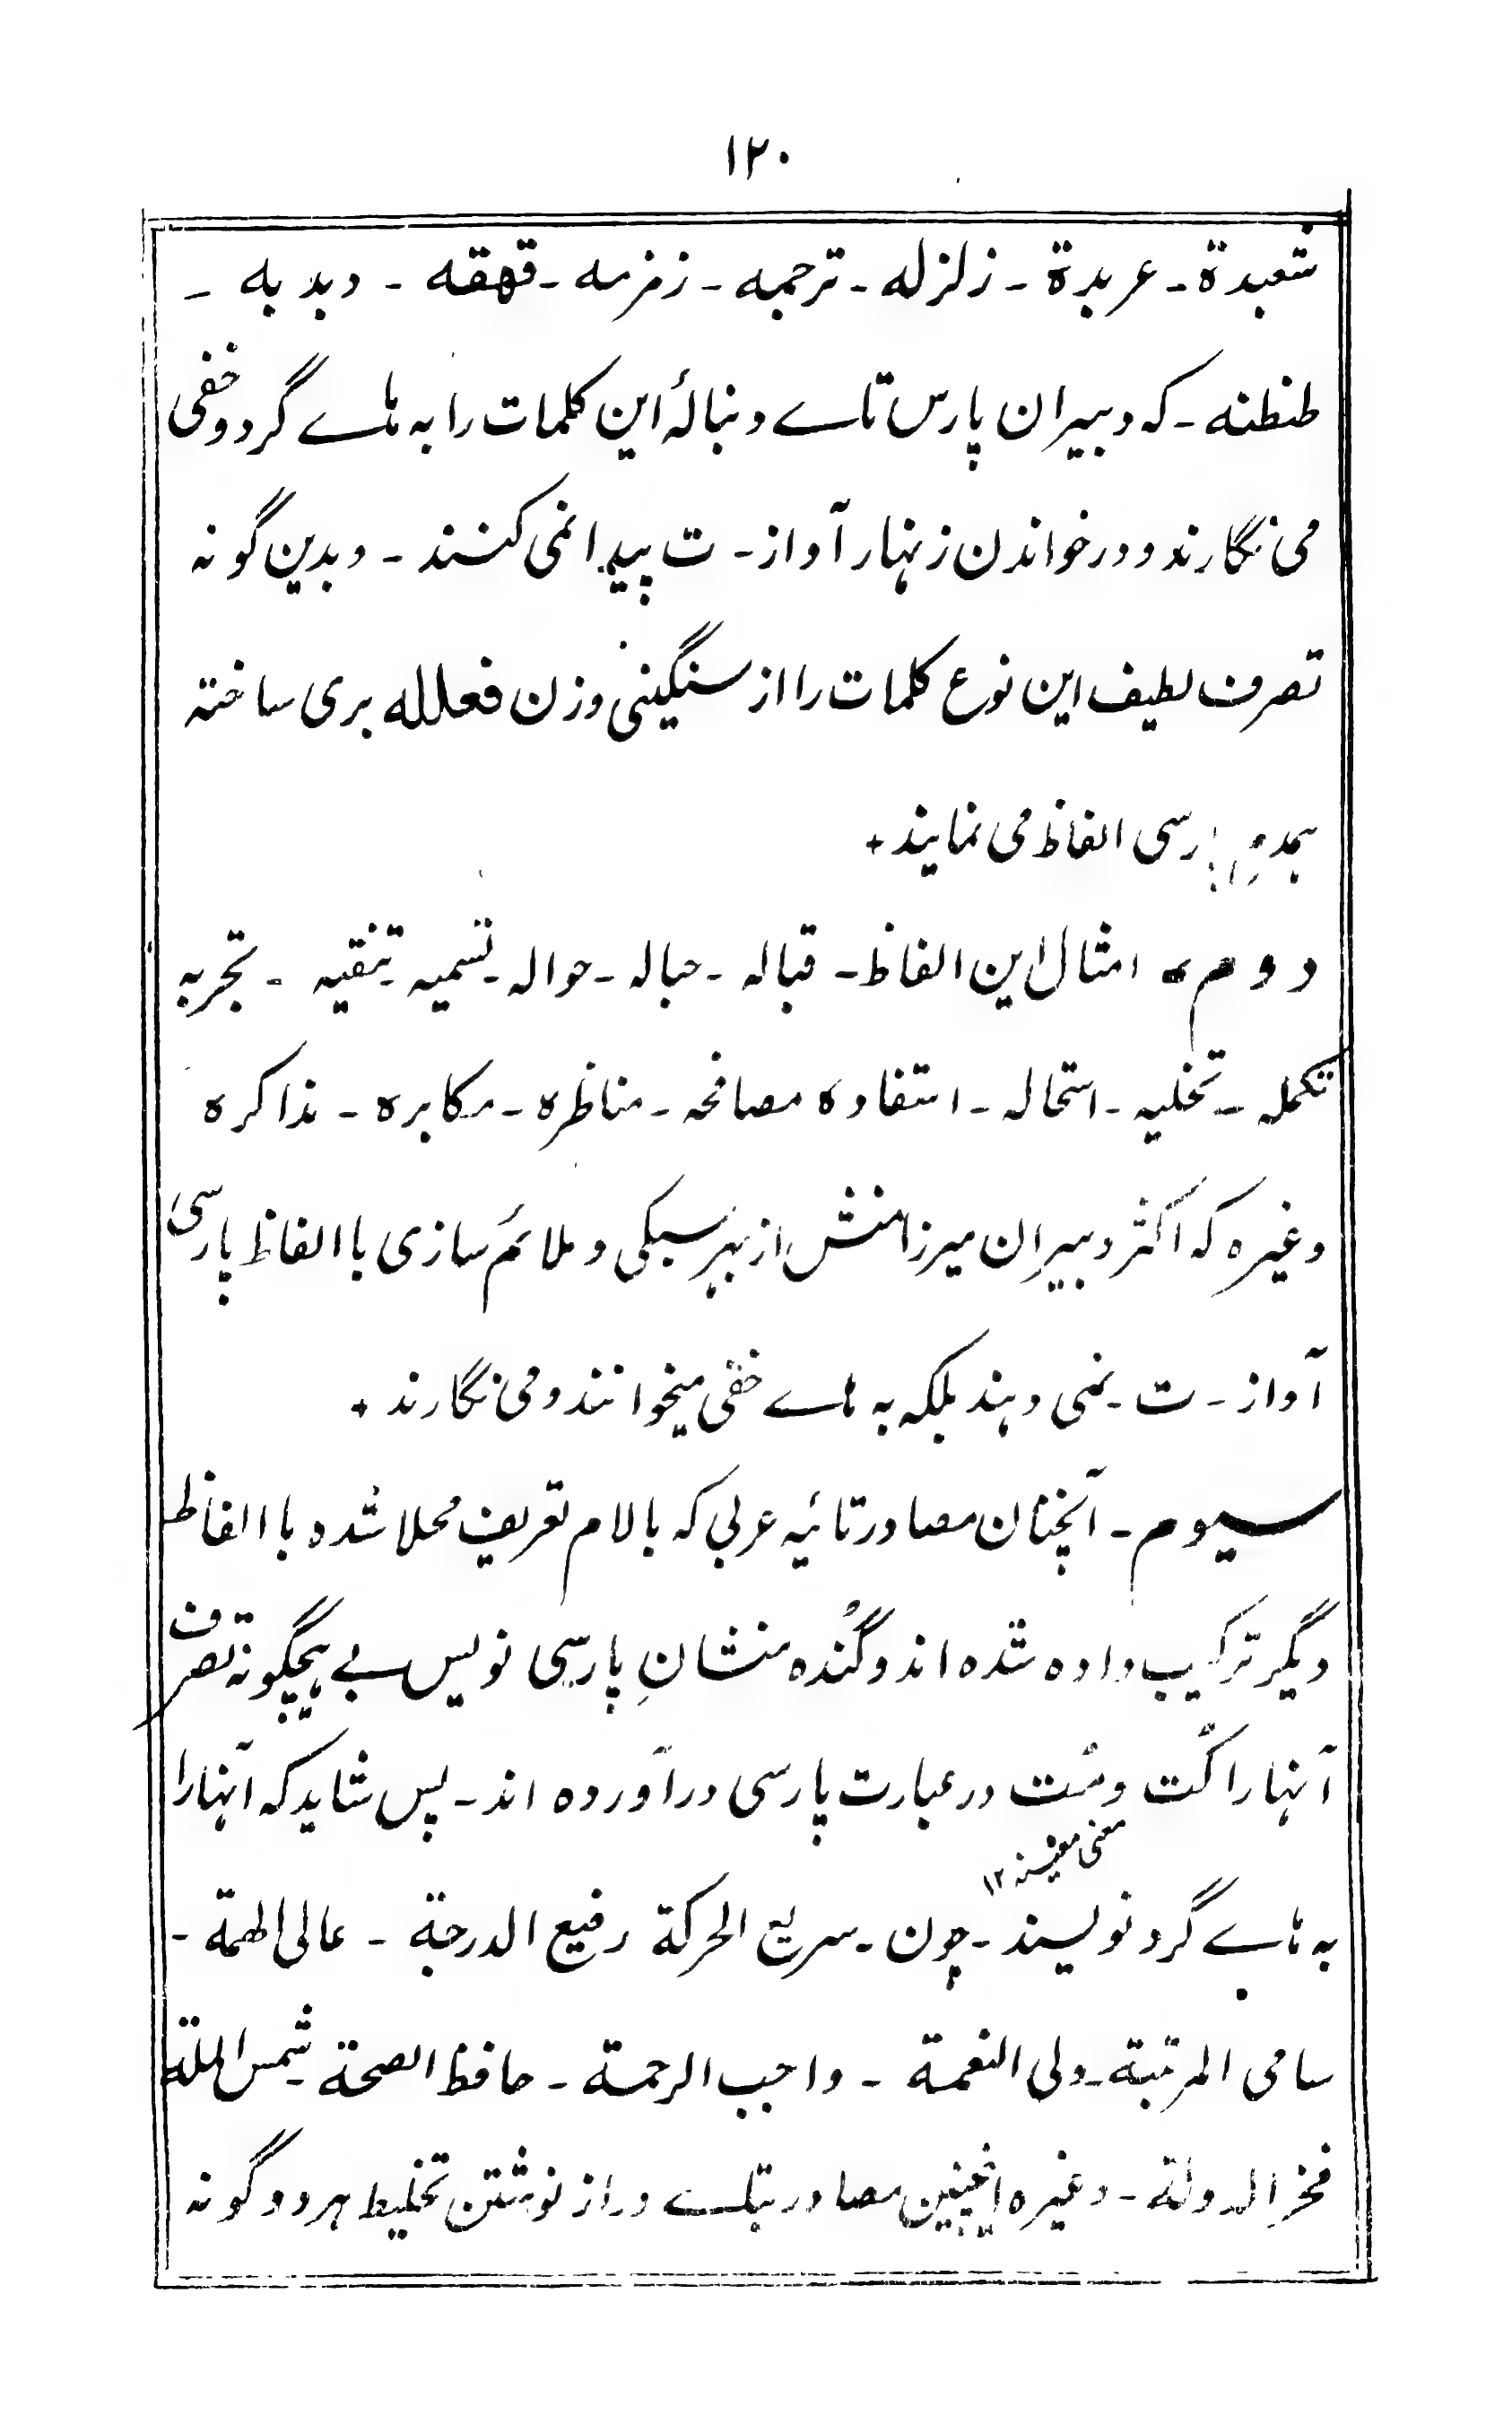 ۱۲۰
شعبدة - عربدة - زلزله - ترجمه - زمزمه - قهقه - دبدبه -
طنطنه - که دبیران پارس تاے دنبالۂ این کلمات را به هاے گرد و خفی
می نگارند و در خواندن زنهار آواز - ت پیدا نمی کنند - و بدین گونه
تصرف لطیف این نوع کلمات را از سنگینیِ وزن فعلله بری ساخته
پارسی الفاظ می نمایند +
دوم، امثال این الفاظ - قباله - حباله - حواله - تسمیه - تنقیه - تجربه
تکمله - تخلیه - استحاله - استفاده مصافحه - مناظره - مکابره - مذاکره
وغیره که اکثر دبیران میرزا منش از بهر سبکی و ملائم سازی با الفاظ پارسی
آواز - ت - نمی دهند بلکه به هاے خفی میخوانند و می نگارند +
سیوم - آنچنان مصادر تائیه عربی که بالام تعریف محلا شده با الفاظ
دیگر ترکیب داده شده اند و گُنده منشانِ پارسی نویس بے هیچگونه تصرف
آنهارا کُت و مُت در عبارت پارسی درآورده اند - پس شاید که آنهارا
به هاے گرد نویسند - چون - سریع الحرکة رفیع الدرجة - عالی الهمة -
سامی المرتبة - ولی النعمة - واجب الرحمة - حافظ الصحة - شمس الملة
فخر الدولة - وغیره اینچنین مصادر بتاے دراز نوشتن تخلیط هر دو گونه